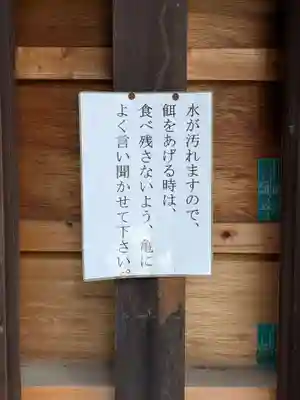 水が汚れますので、
餌をあげる時は、
食べ残さないよう、亀に
よく言い聞かせて下さい。